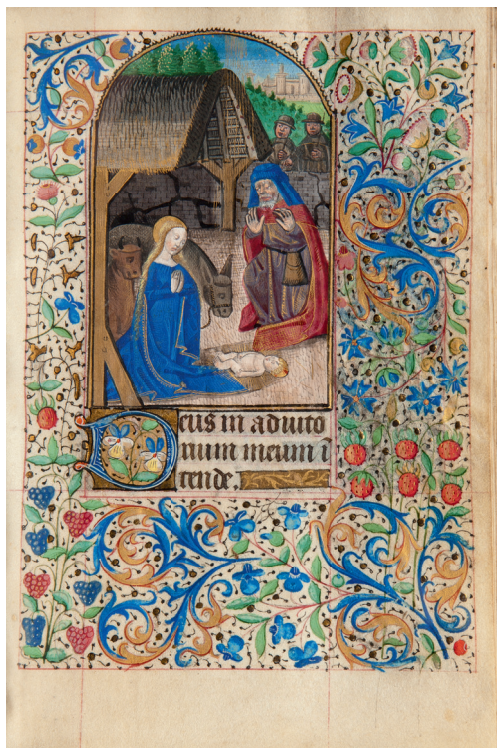 Deus in adiuto
rium meum ī
tende.